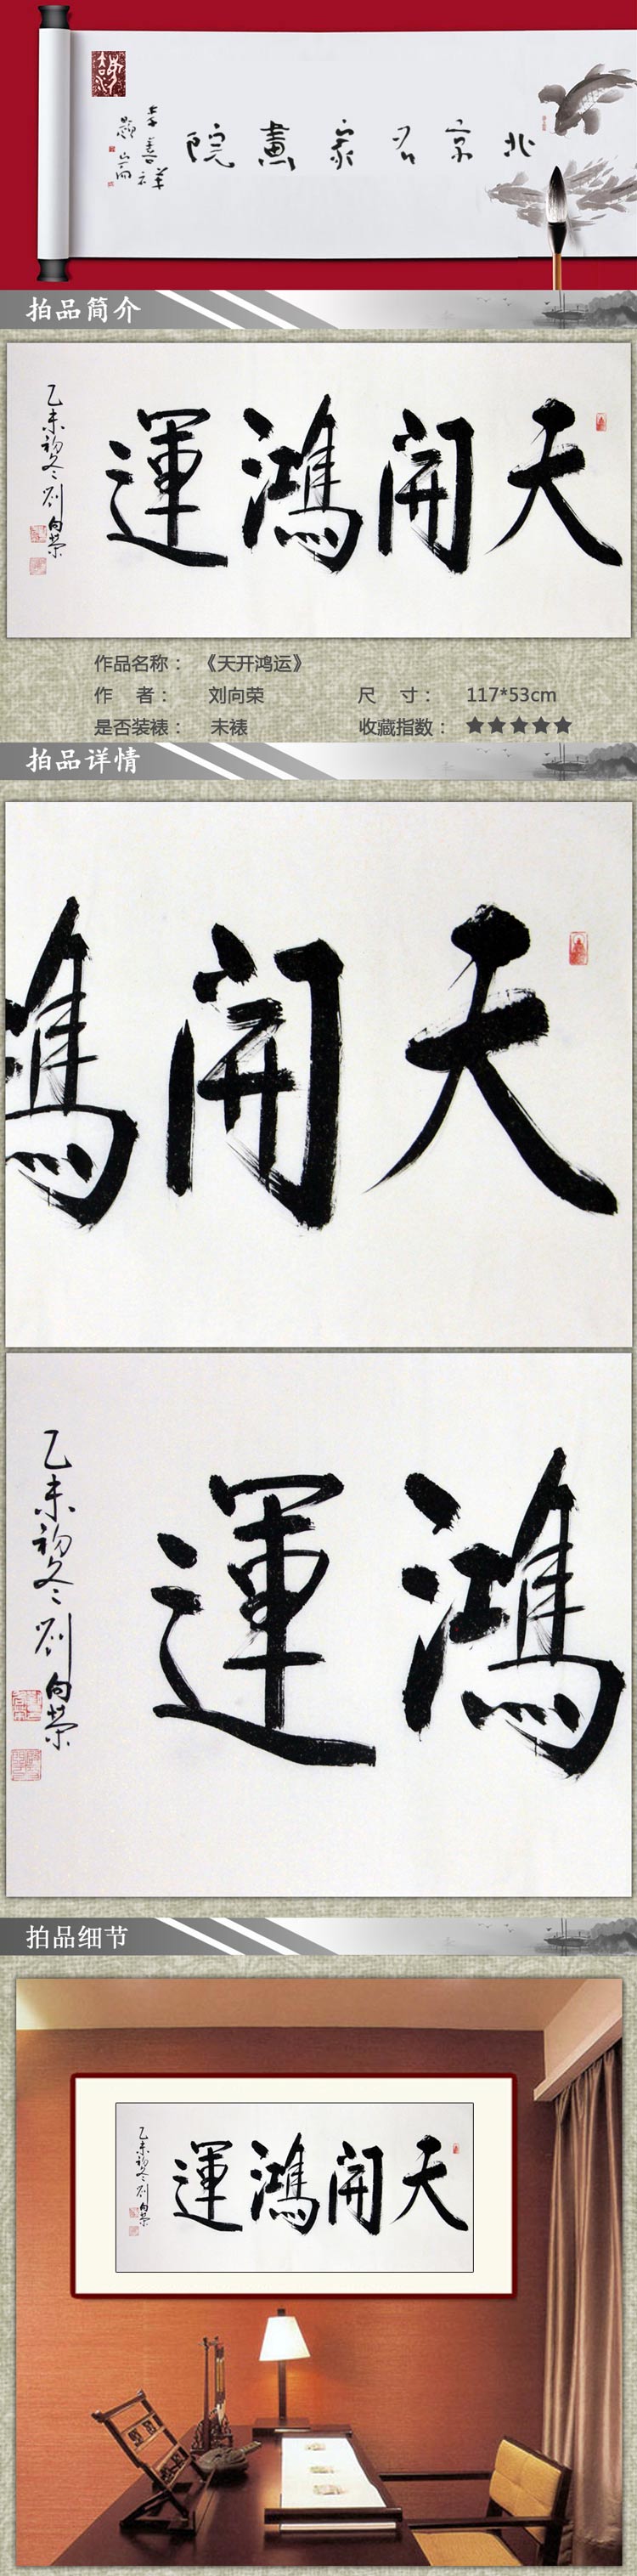 北京名家畫院
李善祥
題
拍品简介
天開鴻運
乙未初冬劉向榮
作品名称： 《天开鸿运》
作 者： 刘向荣 尺 寸： 117*53cm
是否装裱： 未裱 收藏指数： ★★★★★
拍品详情
天開鴻
鴻運
乙未初冬劉向榮
拍品细节
天開鴻運
乙未初冬劉向榮